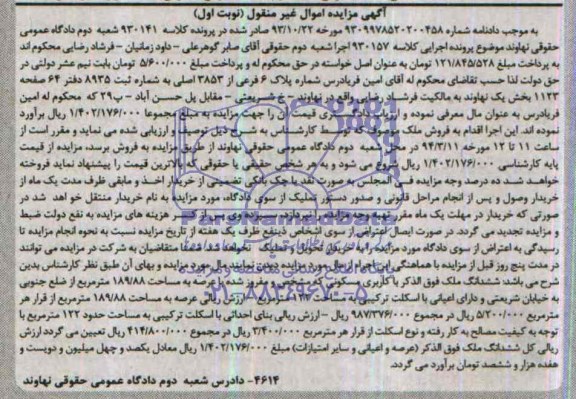 آگهی مزایده اموال غیر منقول (نوبت اول)
به موجب دادنامه شماره ۹۳۰۹۹۷۸۵۲۰۲۰۰۴۵۸ مورخه ۹۳/۱۰/۲۲ صادر شده در پرونده کلاسه ۹۳۰۱۴۱ شعبه دوم دادگاه عمومی
حقوقی نهاوند موضوع پرونده اجرایی کلاسه ۹۳۰۱۵۷ اجرا شعبه دوم حقوقی آقای صابر گوهرعلی - داود زمانیان - فرشاد رضایی محکوم اند
به پرداخت مبلغ ۱۲۱/۸۴۵/۵۲۸ تومان به عنوان اصل خواسته در حق محکوم له و پرداخت مبلغ ۵/۶۰۰/۰۰۰ تومان بابت نیم عشر دولتی در
حق دولت لذا حسب تقاضای محکوم له آقای امین فریادرس شماره پلاک ۶ فرعی از ۳۸۵۳ اصلی به شماره ثبت ۸۹۳۵ دفتر ۶۴ صفحه
۱۱۲۳ بخش یک نهاوند به مالکیت فرشاد رضایی واقع در نهاوند - خ شریعتی - مقابل پل حسن آباد - پ۲۹ که محکوم له امین
فریادرس به عنوان مال معرفی نموده و ارزیاب دادگستری قیمت آن را جهت مزایده به مبلغ مجموعا ۱/۴۰۲/۱۷۶/۰۰۰ ریال برآورد
نموده اند. این اجرا اقدام به فروش ملک موصوف که توسط کارشناس به شرح ذیل توصیف و ارزیابی شده می نماید و مقرر است از
ساعت ۱۱ تا ۱۲ مورخه ۹۴/۳/۱۱ در محل شعبه دوم دادگاه عمومی حقوقی نهاوند از طریق مزایده به فروش برسد، مزایده از قیمت
پایه کارشناسی ۱/۴۰۲/۱۷۶/۰۰۰ ریال شروع می شود و به هر شخص حقیقی یا حقوقی که بالاترین قیمت را پیشنهاد نماید فروخته
خواهد شد ده درصد وجه مزایده فی المجلس به صورت نقد یا چک بانکی تضمینی از خریدار اخذ و مابقی ظرف مدت یک ماه از
خریدار وصول و پس از انجام مراحل قانونی و صدور دستور تملیک از سوی دادگاه، مورد مزایده به نام خریدار منتقل خواهد شد در
صورتی که خریدار در مهلت یک ماه مقرر بقیه وجه مزایده را نپردازد سپرده وی پس از کسر هزینه های مزایده به نفع دولت ضبط
و مزایده تجدید می گردد. در صورت ایصال اعتراض از سوی اشخاص ذینفع ظرف یک هفته از تاریخ مزایده نسبت به نحوه انجام مزایده تا
رسیدگی به اعتراض از سوی دادگاه مورد مزایده به خریدار تحویل و تملیک نخواهد شد. ضمنا متقاضیان به شرکت در مزایده می توانند
در مدت پنج روز قبل از مزایده با هماهنگی این اجرا از اموال مورد مزایده دیدن نمایند. مال مورد مزایده و بهای آن طبق نظر کارشناس بدین
شرح می باشد: ششدانگ ملک فوق الذکر با کاربری مسکونی که عرصه به مساحت ۱۸۹/۸۸ مترمربع از ضلع جنوبی
به خیابان شریعتی و دارای اعیانی با اسکلت ترکیبی ارزش ریالی عرصه به مساحت ۱۸۹/۸۸ مترمربع از قرار هر
مترمربع ۵/۲۰۰/۰۰۰ ریال در مجموع ۹۸۷/۳۷۶/۰۰۰ ریال - ارزش ریالی بنای احداثی با اسکلت ترکیبی به مساحت حدود ۱۲۲ مترمربع با
توجه به کیفیت مصالح به کار رفته و نوع اسکلت از قرار هر مترمربع ۳/۴۰۰/۰۰۰ ریال در مجموع ۴۱۴/۸۰۰/۰۰۰ ریال تعیین می گردد ارزش
ریالی کل ششدانگ ملک فوق الذکر (عرصه و اعیانی و سایر امتیازات) مبلغ ۱/۴۰۲/۱۷۶/۰۰۰ ریال معادل یکصد و چهل میلیون و دویست و
هفده هزار و ششصد تومان برآورد می گردد.
۴۶۱۴- دادرس شعبه دوم دادگاه عمومی حقوقی نهاوند